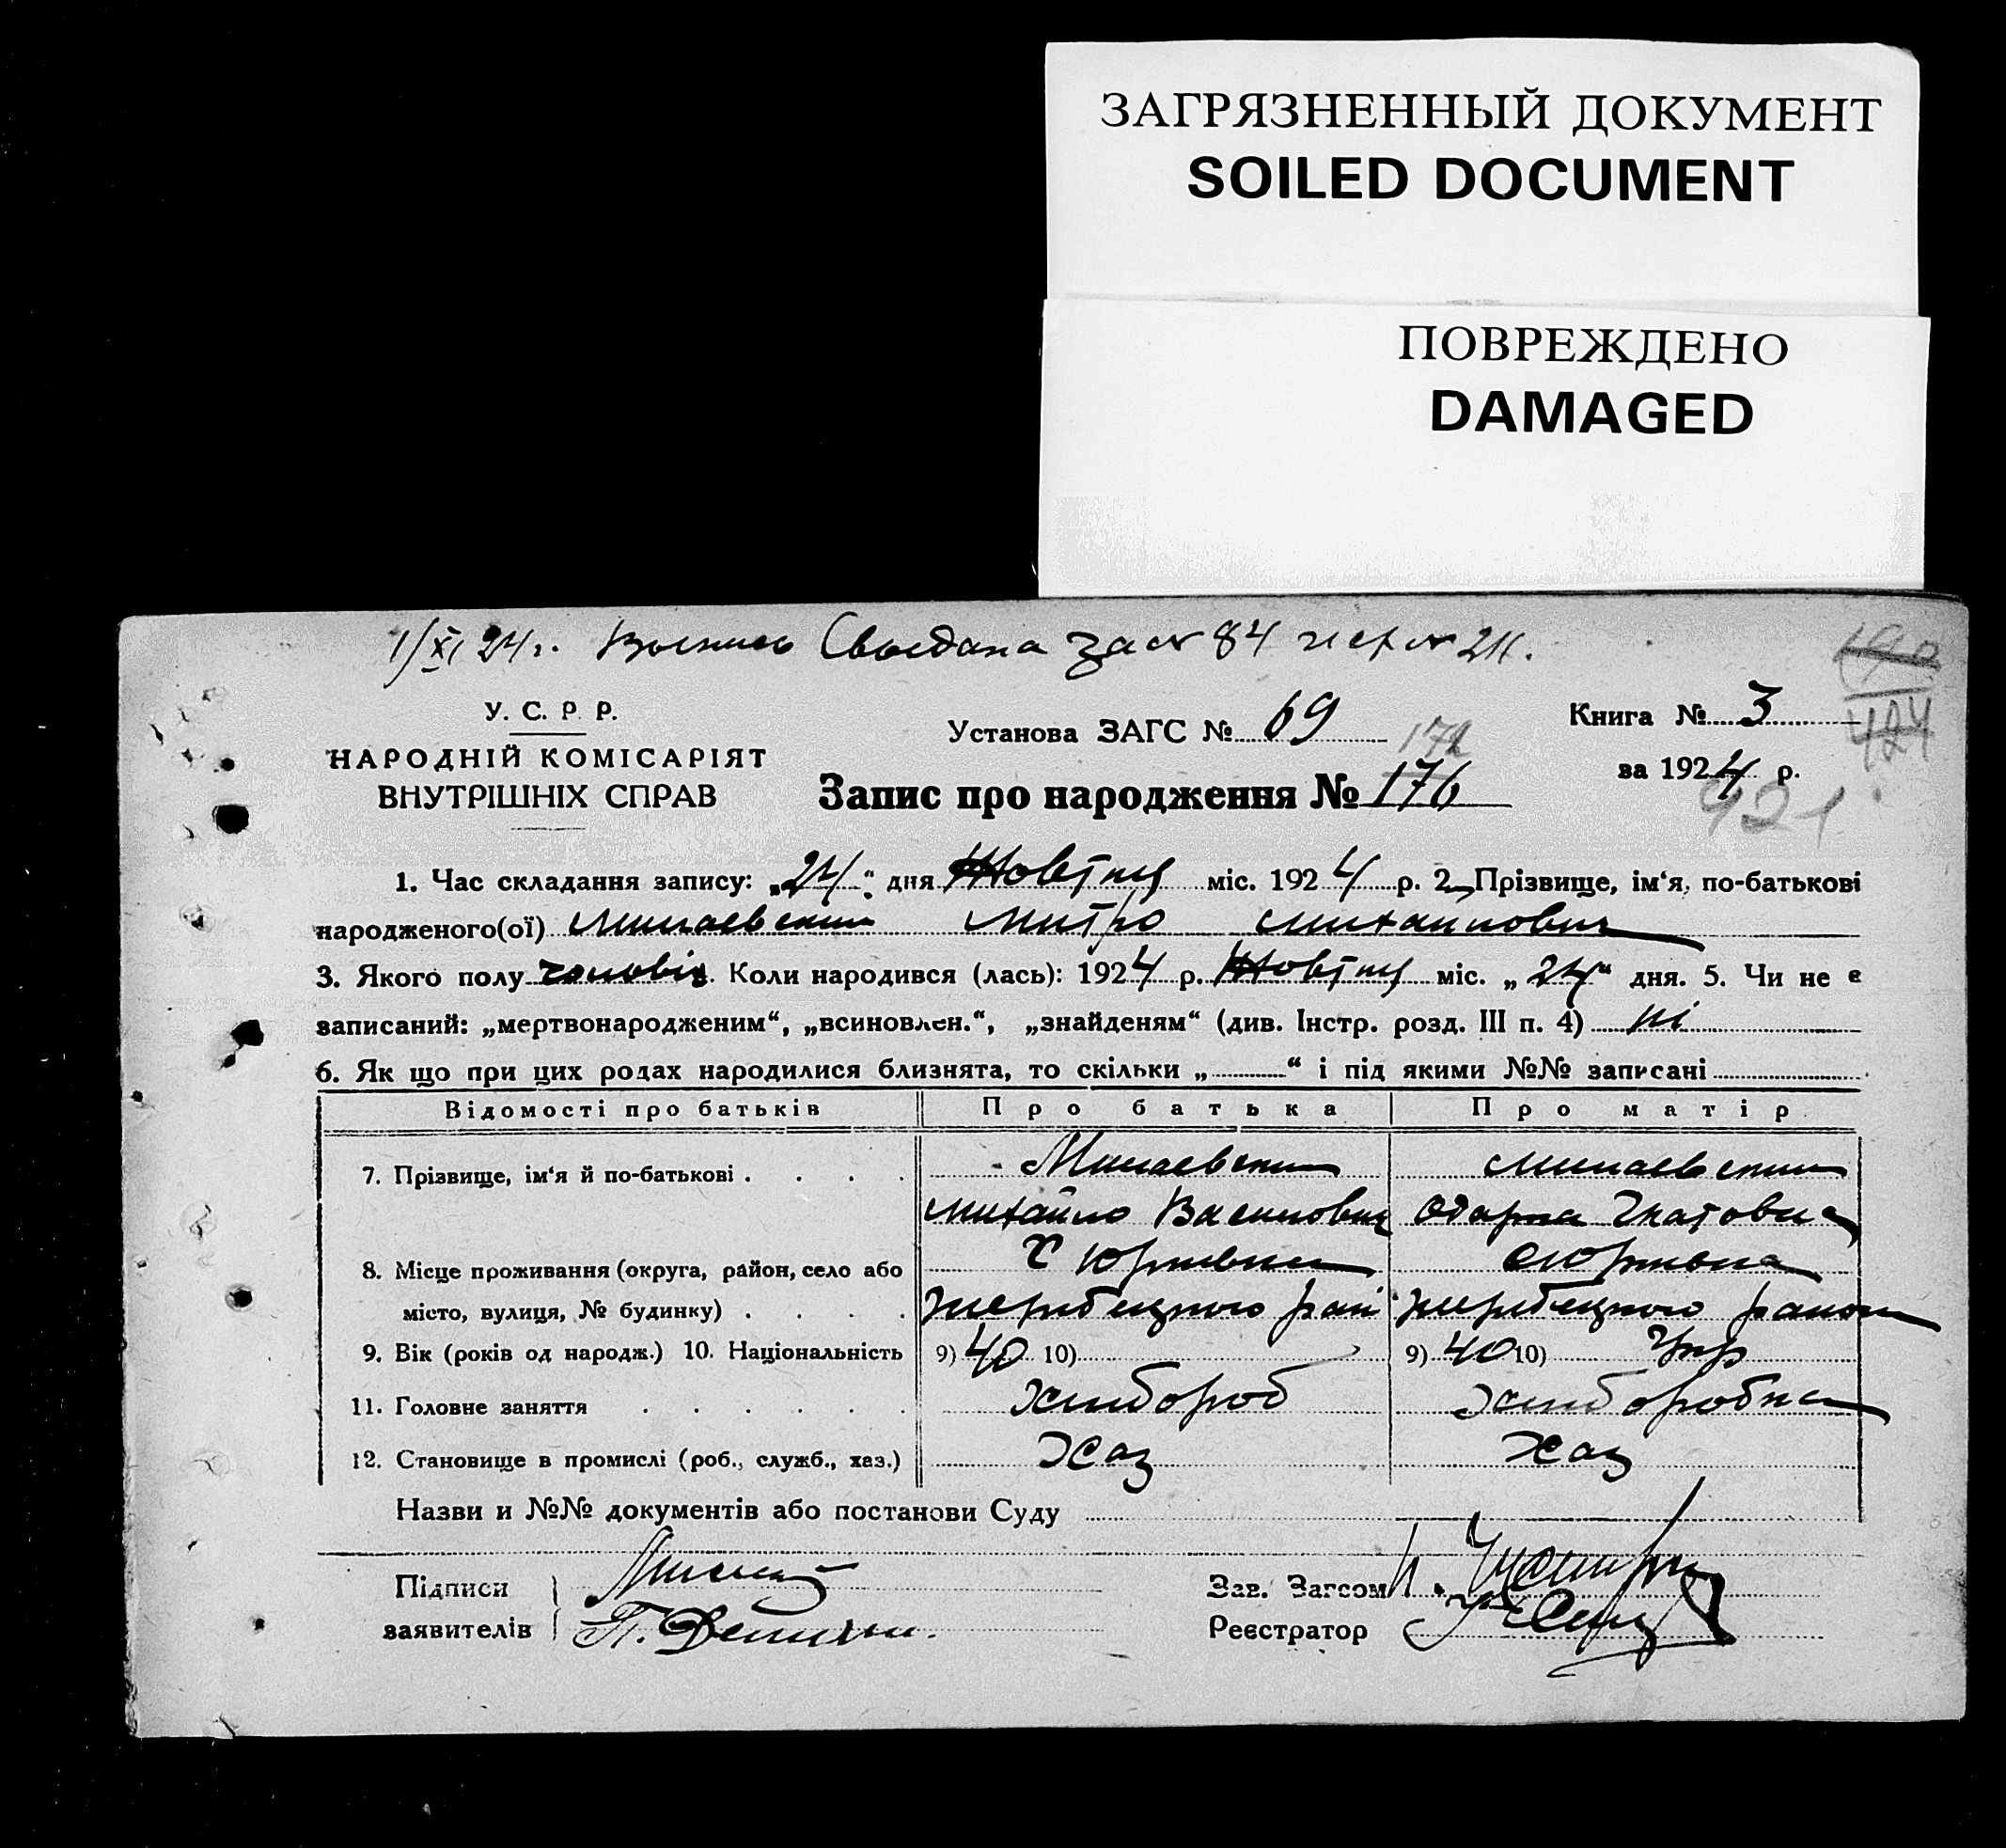 ЗАГРЯЗНЕННЫЙ ДОКУМЕНТ
SOILED DOCUMENT
ПОВРЕЖДЕНО
DAMAGED
1/XI 24г. за № 84
У. С. Р. Р.
НАРОДНІЙ КОМІСАРІЯТ
ВНУТРІШНІХ СПРАВ
Установа ЗАГС № 69
Запис про народження № 176
Книга № 3
за 1924 р.
1. Час складання запису: „24“ дня Жовтня міс. 1924 р. 2. Прізвище, ім‘я, по-батькові
народженого(ої) Митро Михайлович
3. Якого полу чоловіч. Коли народився (лась): 1924 р. Жовтня міс. „24“ дня. 5. Чи не є
записаний: „мертвонародженим“, „всиновлен.“, „знайденям“ (див. Інстр. розд. III п. 4) ні
6. Як що при цих родах народилися близнята, то скільки „ “ і під якими №№ записані
Відомості про батьків Про батька Про матір
7. Прізвище, ім‘я й по-батькові
Михайло Василович Одарка Гнатовна
8. Місце проживання (округа, район, село або
місто, вулиця, № будинку)
9. Вік (років од народж.) 10. Національність 9) 40 10) 9) 40 10) Укр
11. Головне заняття Хлибороб Хлиборобка
12. Становище в промислі (роб., служб., хаз.) Хаз Хаз
Назви и №№ документів або постанови Суду
Підписи
заявителів
Зав. Загсом
Реєстратор